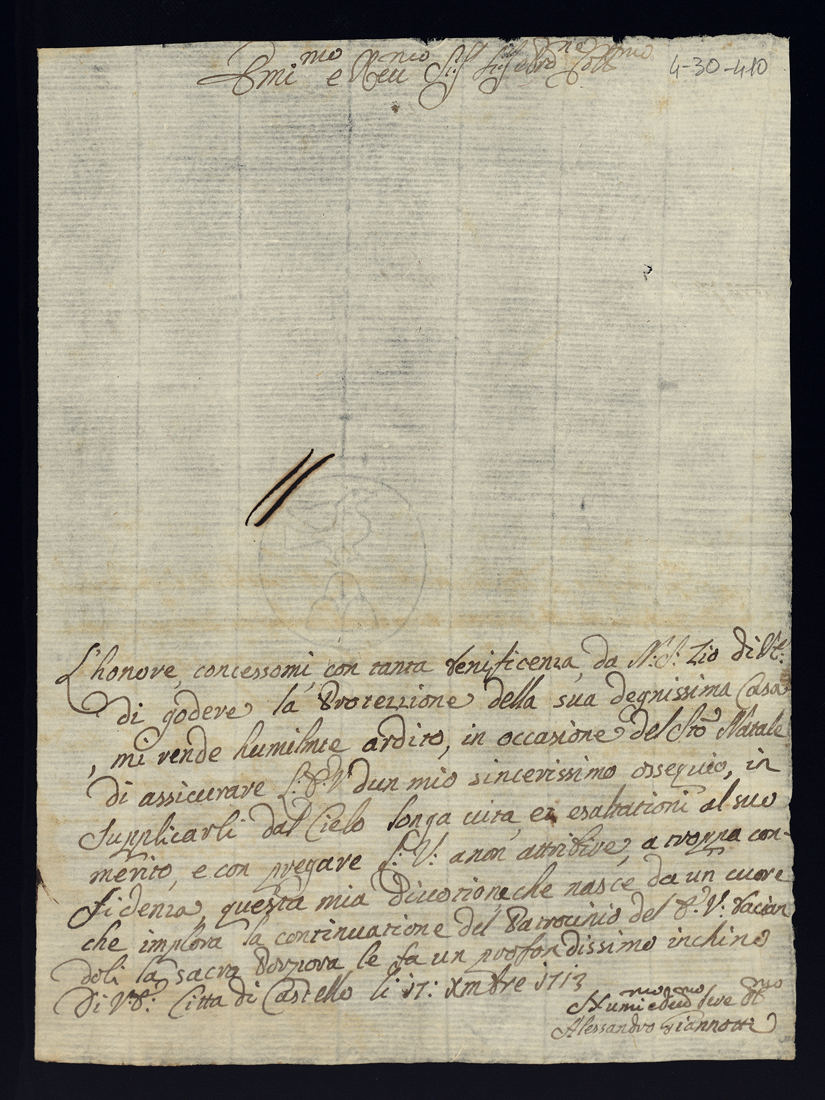 Emi.mo e Reu.mo Sig.r Sig.r Pron.e Coll.mo
4-30-410
L'honore, concessomi, con tanta benificenza, da N: S: Zio di V.E:
di godere la Protezzione della sua degnissima Casa
, mi rende humilm.te ardito, in occasione del S.to Natale
di assicurare L'E.V. dun mio sincerissimo ossequio, in
supplicarli dal Cielo longa uita, et esaltationi al suo
merito, e con pregare L'E: V: a non attribuire, a troppa con-
fidenza, questa mia diuotione che nasce da un cuore
che implora la continuatione del Patrocinio del E: V: bacian
doli la sacra Porpora le fa un profondissimo inchino
Di V.E. Citta di Castello li 17: Xmbre 1713
Hum.mo e deu.mo Serv.
Alessandro Giannotti